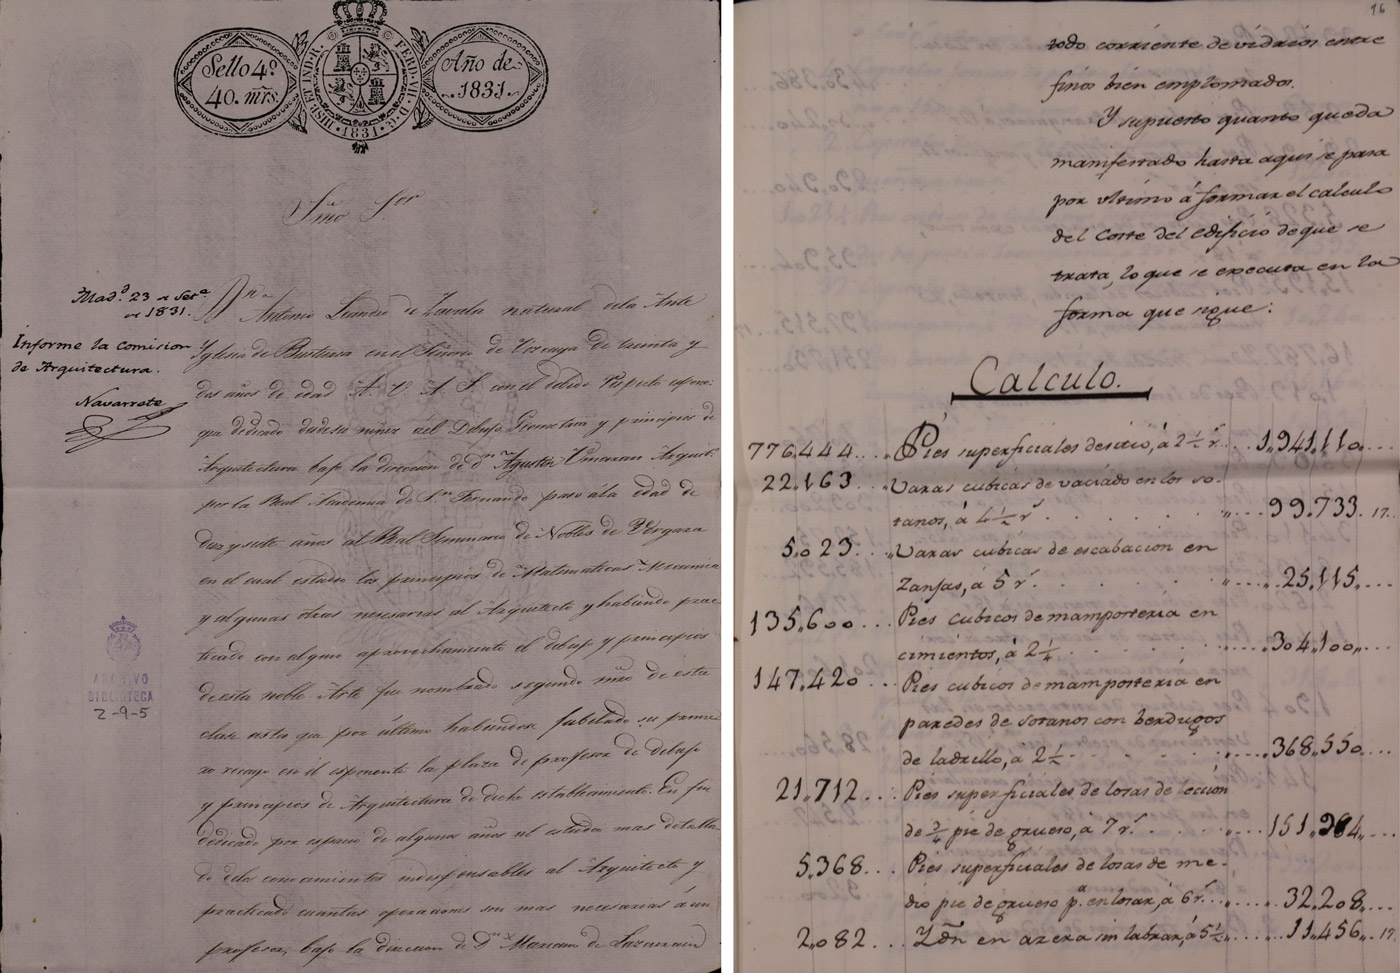 Sello 4º
40. mrs.
HISP. ET IND. R. FERD. VII. D. G.
1831
Año de
1831.
Exmo Sor
Madd. 23 de Sete
de 1831.
Informe la comision
de Arquitectura.
Navarrete
Dn Antonio Leandro de Zavala natural de la Ante
Yglesia de Busturia en el Señorio de Vizcaya de treinta y
dos años de edad A. V. A. S. con el devido respeto espone:
que dedicado desde su niñez al Dibujo Geometria y principios de
Arquitectura bajo la direccion de dn Agustin Umaran Arquitto
por la Real Academia de Sn Fernando paso á la edad de
diez y siete años al Real Seminario de Nobles de Vergara
en el cual estudio los principios de Matematicas Mecanica
y algunas otras necesarias al Arquitecto y habiendo prac
ticado con algun aprovechamiento el dibujo y principios
de esta noble Arte fue nombrado segundo mro de esta
clase asta que por último habiendose jubilado su prime
ro recayo en el esponente la plaza de profesor de dibujo
y principios de Arquitectura de dicho establecimiento. En fin
dedicado por espacio de algunos años al estudio mas detalla
do de los conocimientos indispensables al Arquitecto y
practicado cuantas operaciones son mas necesarias á un
profesor, bajo la direccion de Dn Mariano de Lascurain
ARCHIVO
BIBLIOTECA
2-9-5
16
todo corriente de vidrios entre
finos bien emplomados.
Y supuesto quanto queda
manifestado hasta aqui se pasa
por ultimo á formar el calculo
del Coste del edificio de que se
trata, lo que se executa en la
forma que sigue:
Calculo.
776,444... Pies superficiales de sitio, á 2½ r.... 1,941,110...
22,163... Varas cubicas de vaciado en los so-
tanos, á 4½ r. .... 99,733. 17.
5,023... Varas cubicas de escabacion en
zanjas, á 5 r. .... 25,115...
135,600... Pies cubicos de mamposteria en
cimientos, á 2¼ .... 304,100...
147,420... Pies cubicos de mamposteria en
paredes de sotanos con berdugos
de ladrillo, á 2½ .... 368,550...
21,712... Pies superficiales de losas de leccion
de ¾ pie de grueso, á 7 r. .... 151,984...
5,368... Pies superficiales de losas de me-
dio pie de grueso pa. enlosar, á 6 r. ... 32,208...
2,082... Ydn en azera sin labrar, á 5½ ... 11,456.. 17